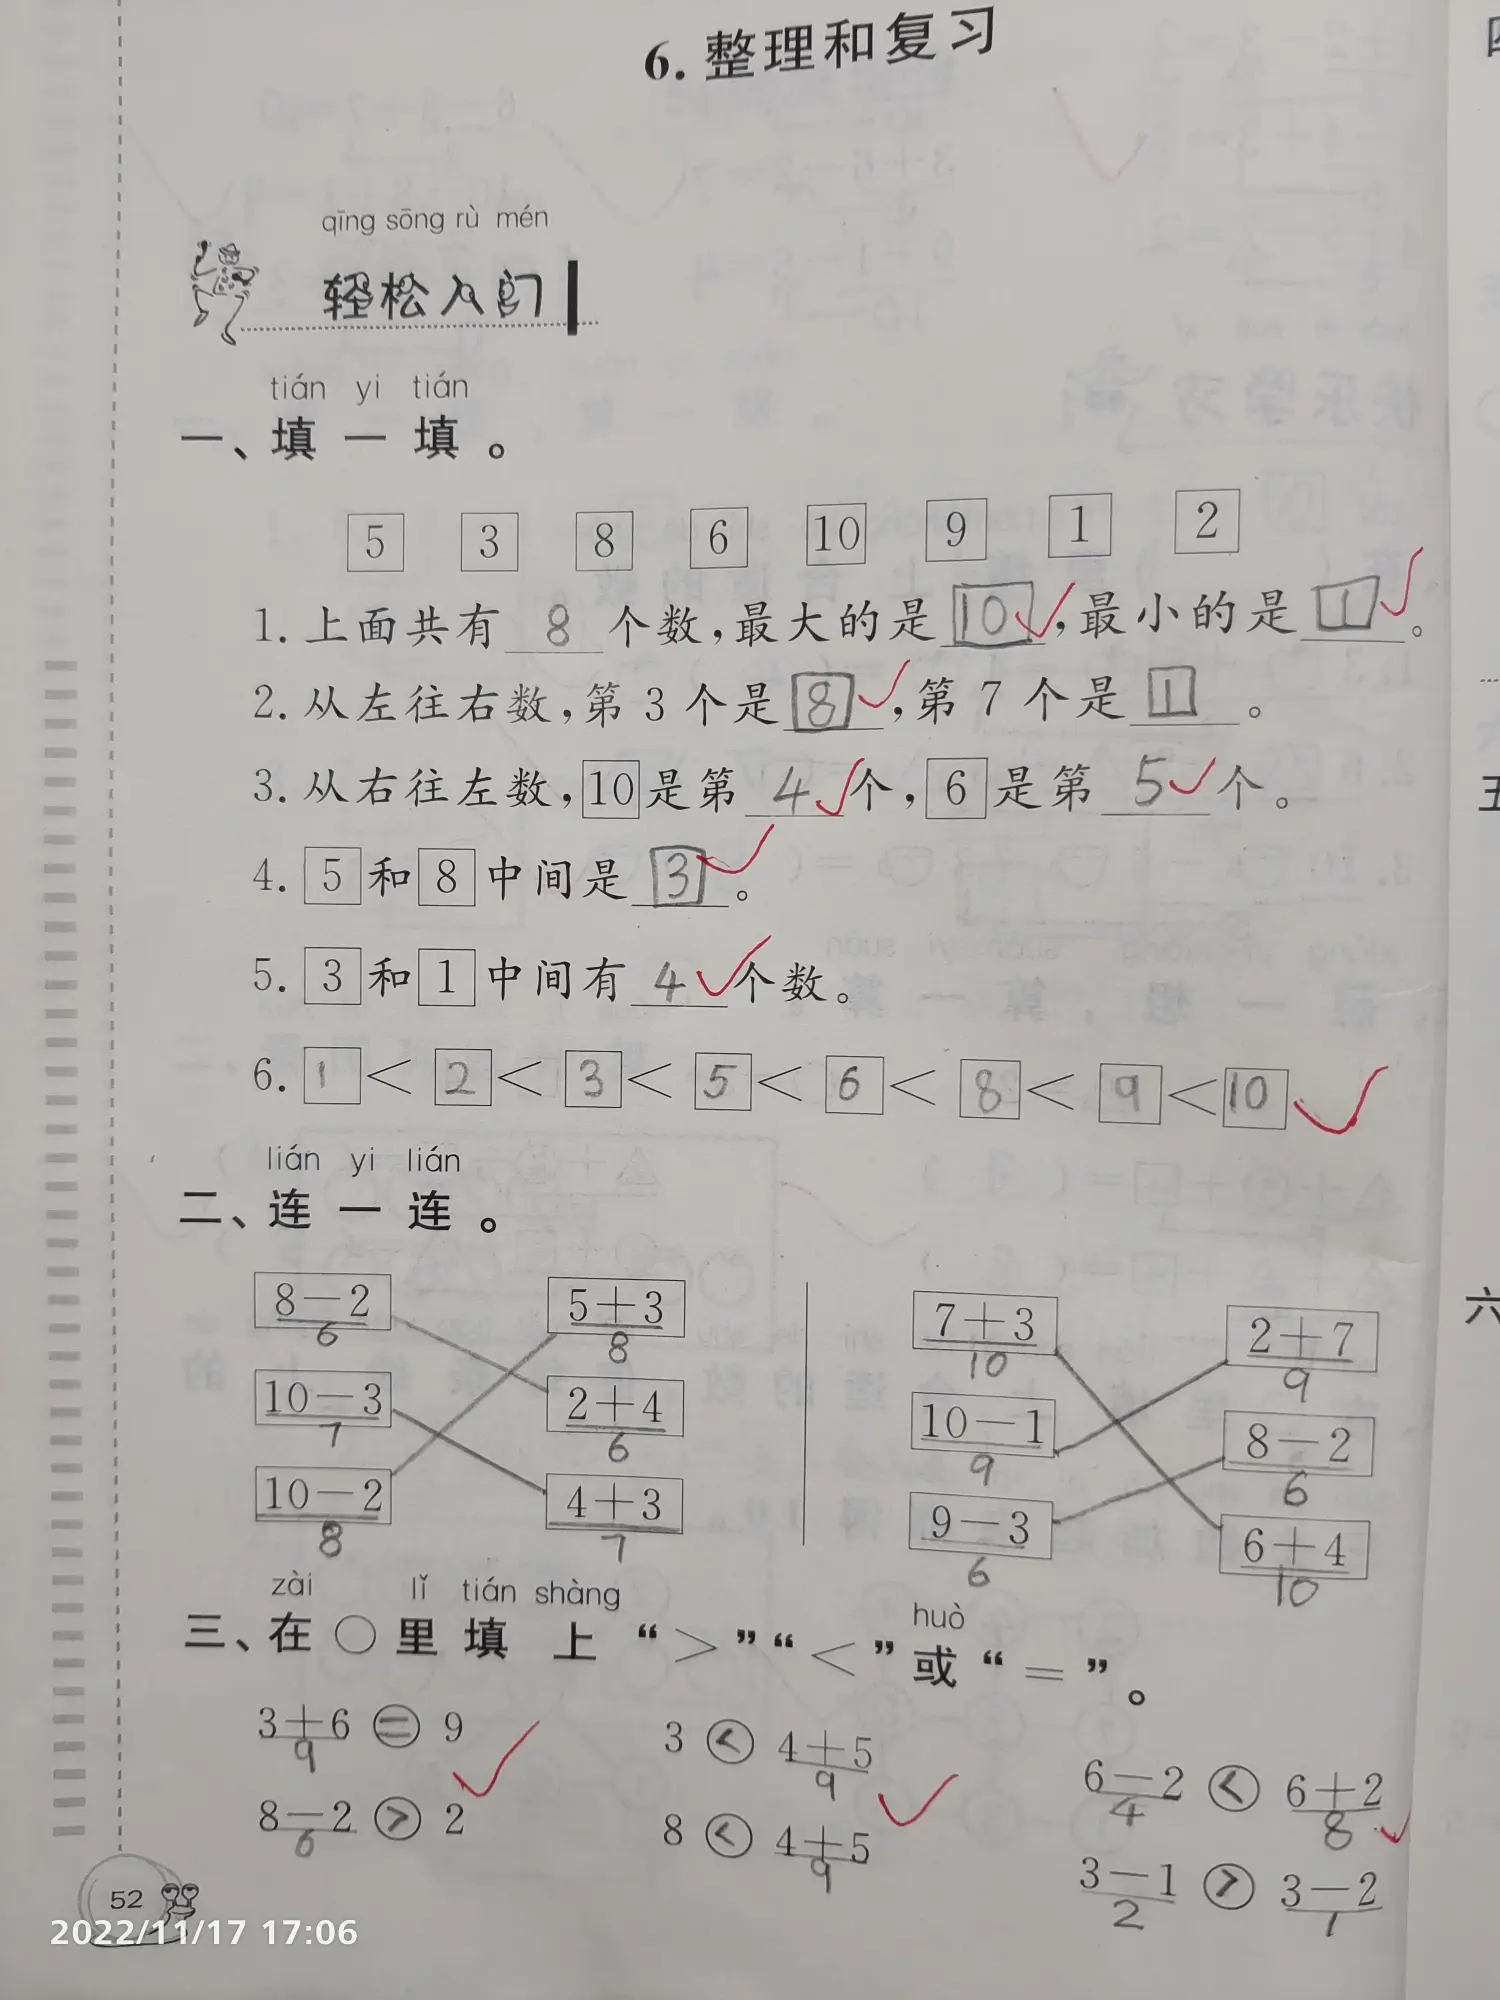 6. 整理和复习
qīng sōng rù mén
轻松入门
tián yi tián
一、填一填。
5 3 8 6 10 9 1 2
1. 上面共有 8 个数,最大的是 10,最小的是 1。
2. 从左往右数,第 3 个是 8,第 7 个是 1。
3. 从右往左数,10是第 4 个,6是第 5 个。
4. 5和8中间是 3。
5. 3和1中间有 4 个数。
6. 1 < 2 < 3 < 5 < 6 < 8 < 9 < 10
lián yi lián
二、连一连。
8－2 5＋3 7＋3 2＋7
6 8 10 9
10－3 2＋4 10－1 8－2
7 6 9 6
10－2 4＋3 9－3 6＋4
8 7 6 10
zài lǐ tián shàng huò
三、在○里填上“>”“<”或“=”。
3＋6 = 9 3 < 4＋5 6－2 < 6＋2
9 9 4 8
8－2 > 2 8 < 4＋5 3－1 > 3－2
6 9 2 1
52
2022/11/17 17:06
四
五
六